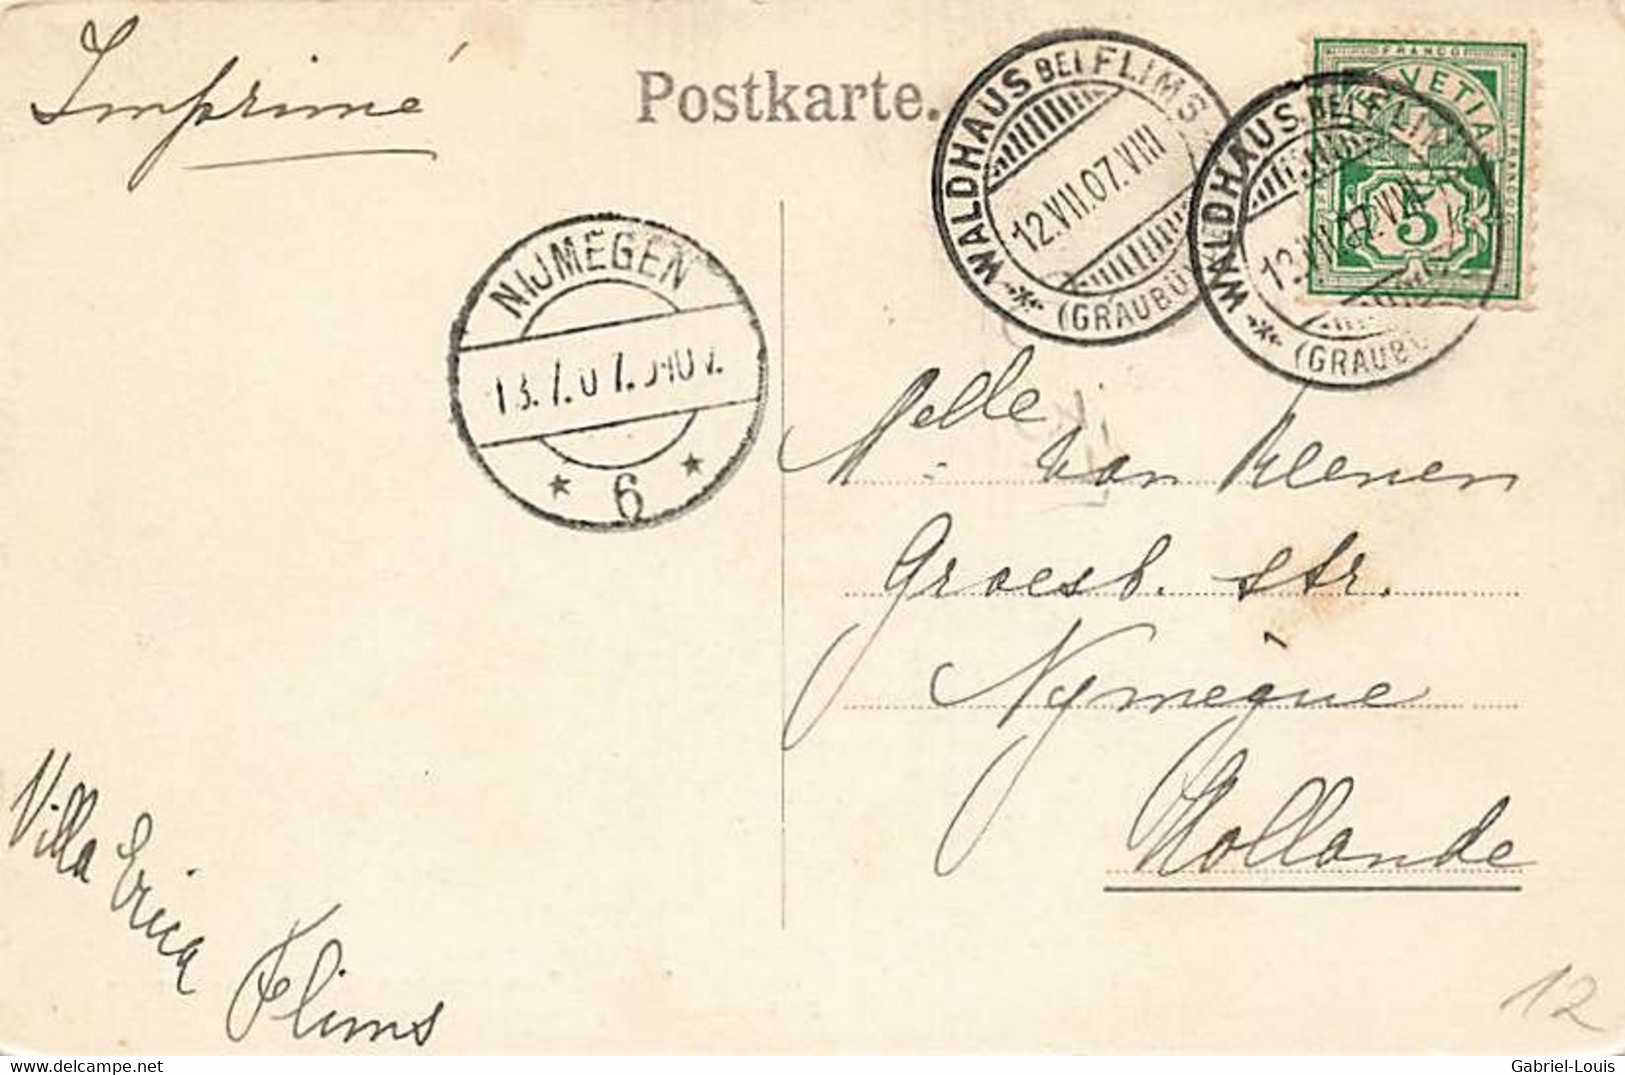 Imprimé
Postkarte.
WALDHAUS BEI FLIMS
12.VII.07.VIII
(GRAUBÜ
WALDHAUS BEI FLIM
12.VII.07.VIII
(GRAUBÜ
FRANCO
HELVETIA
5
NIJMEGEN
13.7.07.
6
Melle van
Groesb. str.
Nymegue
Hollande
Villa Erica
Flims
12
www.delcampe.net
Gabriel-Louis